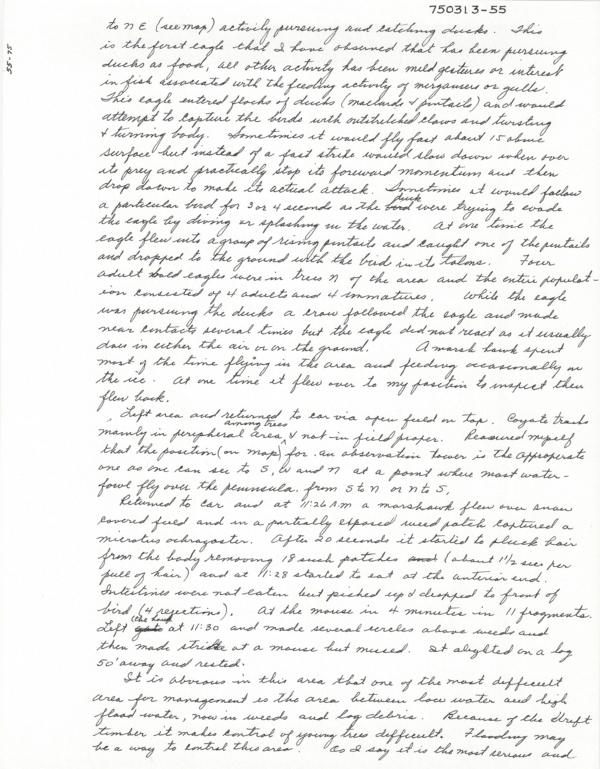 750313-55
55-75
to N E (see map) activly pursuing and catching ducks. This
is the first eagle that I have observed that has been pursuing
ducks as food, all other activity has been mild gestures or interest
in fish associated with the feeding activity of mergansers or gulls.
This eagle entered flocks of ducks (mallards & pintails) and would
attempt to capture the birds with outstretched claws and twisting
& turning body. Sometimes it would fly fast about 15 above
surface but instead of a fast strike would slow down when over
its prey and practically stop its foreward momentum and then
drop down to make its actual attack. Sometimes it would follow
a particular bird for 3 or 4 seconds as the duck were trying to evade
the eagle by diving or splashing in the water. At one time the
eagle flew into a group of rising pintails and caught one of the pintails
and dropped to the ground with the bird in its talons. Four
adult bald eagles were in trees N of the area and the entire populat-
ion consisted of 4 adults and 4 immatures. While the eagle
was pursuing the ducks a crow followed the eagle and made
near contacts several times but the eagle did not react as it usually
does in either the air or on the ground. A marsh hawk spent
most of the time flying in the area and feeding occasionally on
the ice. At one time it flew over to my position to inspect then
flew back.
Left area and returned to car via open field on top. Coyote tracks
mainly in peripheral area, among trees & not in field proper. Reasured myself
that the position (on map) for an observation tower is the approperate
one as one can see to S, W and N at a point where most water-
fowl fly over the peninsula from S to N or N to S,
Returned to car and at 11:26 A.M a marshawk flew over snow
covered field and in a partially exposed weed patch captured a
microtus ochragaster. After 20 seconds it started to pluck hair
from the body removing 18 such patches and (about 1½ secs per
pull of hair) and at 11:28 started to eat at the anterior end.
Intestines were not eaten but picked up & dropped to front of
bird (4 rejections). At the mouse in 4 minutes in 11 fragments.
Left at 11:30 and made several circles above weeds and
then made strike at a mouse but missed. It alighted on a log
50' away and rested.
It is obvious in this area that one of the most difficult
area for management is the area between low water and high
flood water, now in weeds and log debris. Because of the drift
timber it makes control of young trees difficult. Flooding may
be a way to control this area. As I say it is the most serious and